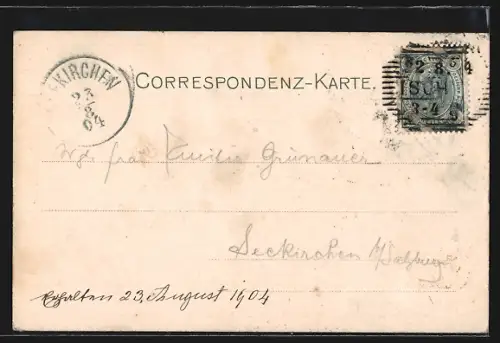 KIRCHEN
23/8
04
CORRESPONDENZ-KARTE.
2 8 04
ISCHL
3-4
frau Emilie Grünauer
Seekirchen b/Salzburg
Erhalten 23. August 1904